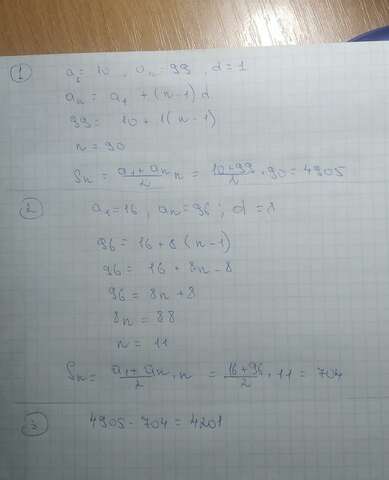 1
a₁ = 10 , aₙ = 99 , d = 1
aₙ = a₁ + (n-1) d
99 = 10 + 1(n-1)
n = 90
Sₙ = (a₁ + aₙ)/2 n = (10+99)/2 · 90 = 4905
2
a₁ = 16 , aₙ = 96 ; d = 8
96 = 16 + 8 (n-1)
96 = 16 + 8n - 8
96 = 8n + 8
8n = 88
n = 11
Sₙ = (a₁ + aₙ)/2 · n = (16+96)/2 · 11 = 704
3
4905 - 704 = 4201